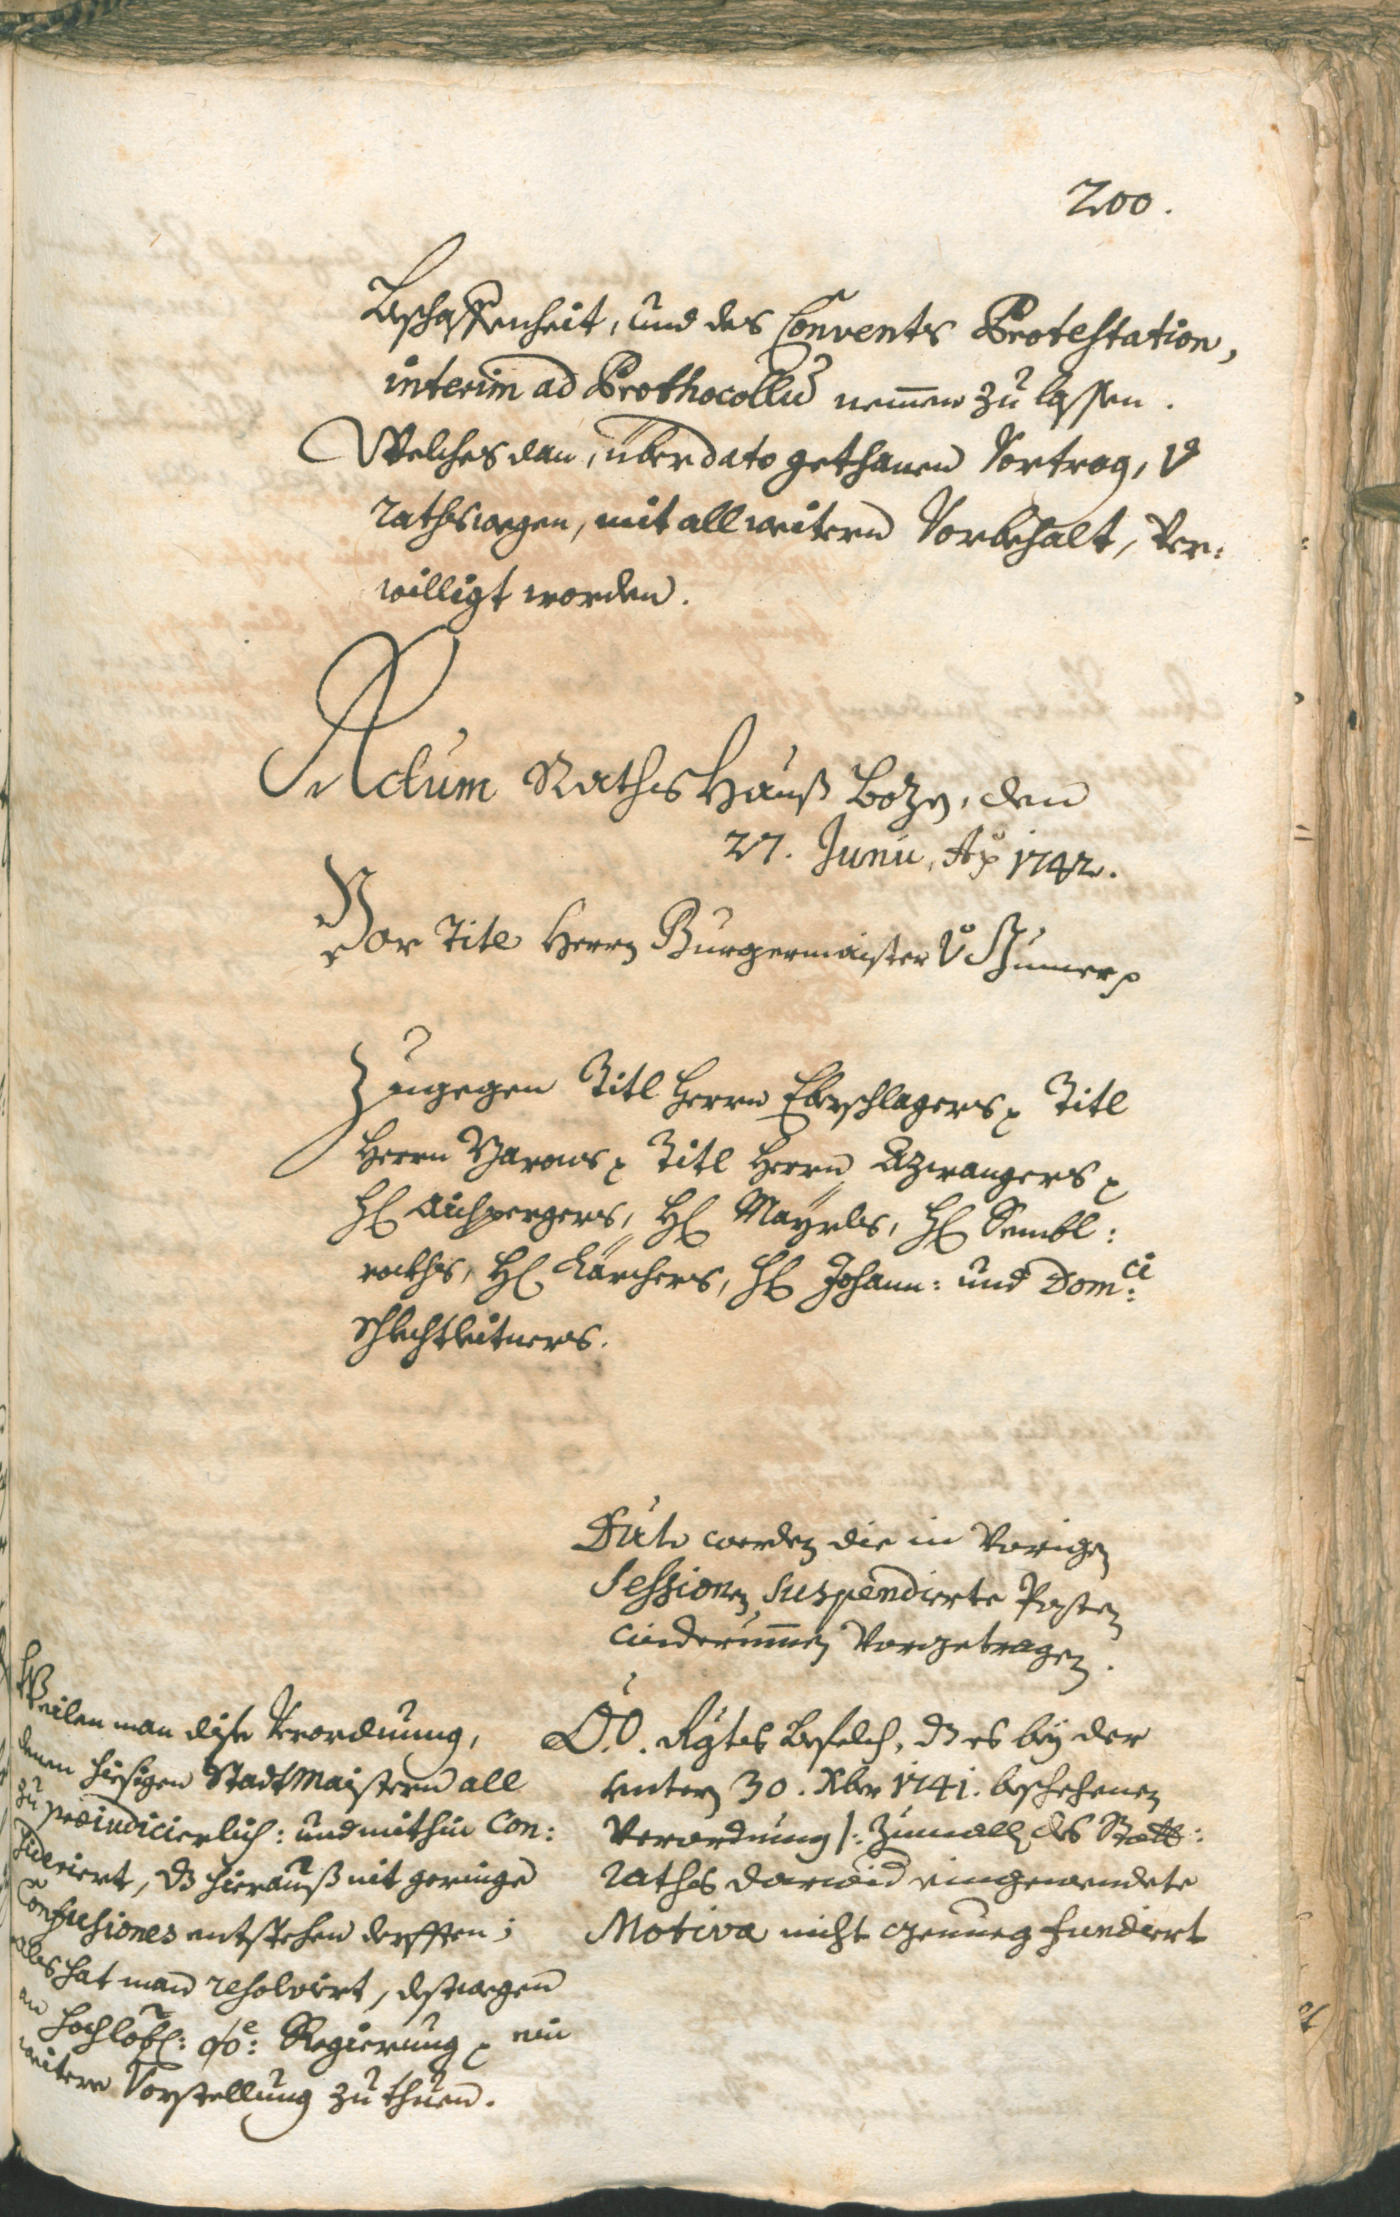 200.
Beschaffenheit, und des Convents Protestation,
interim ad Prothocollũ nem̅en zu lassen.
Welches dan, über dato gethanen Vortrag, v
rathswegen, mit all weitern Vorbehalt, ver:
willigt worden.
Actum Raths Hauß Bozn, den
27. Junii, Aõ 1742.
Vor Titl Herrn Burgermaister v
Zugegen Titl Herrn Eberschlagers Titl
Herrn Titl Herrn Azwangers
H Aichpergers, H Mayrls, H Sembl:
raths, H Kärchers, H Johann: und Dom:ci
Schlechtleitners.
Dato werden die in vorigen
Sessionen suspendierte Posten
widerum̅en vorgetragen.
O.Ö. Rgts Befelch, dz es bey der
untern 30. Xber 1741. beschehenen
Verordnung /: zumall des Statt:
raths darwid eingewendete
Motiva nicht genueg fundiert
Weilen man dise Verordnung,
denen hiesigen StadtMaistern all
zu præiudicierlich: und mithin con:
sideriert, dz hierauß nit geringe
Confusiones entstehen derfften;
als hat man resolvirt, destwegen
an hochlöbl: oö:e Regierung ein
weitere Vorstellung zu thuen.